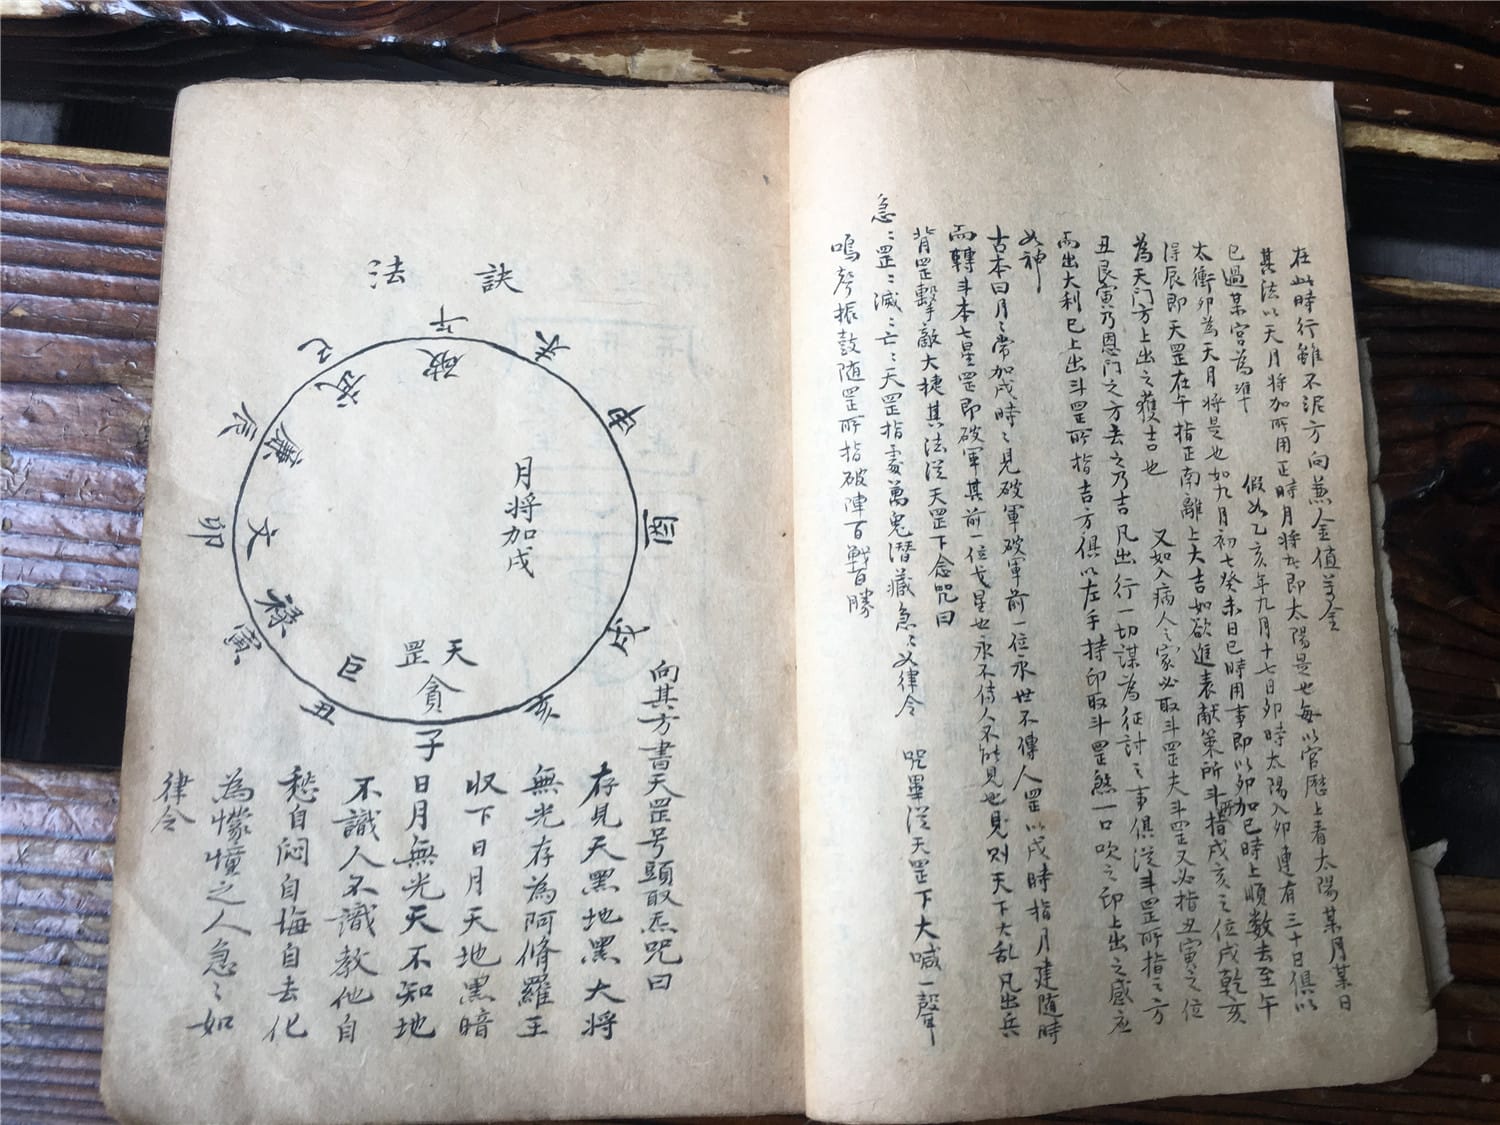 在此時行雖不泥方向兼金值万金
其法以天月將加所用正時月將者即太陽是也每以官歷上看太陽某月某日
已過某宮為準 假如乙亥年九月十七日卯時太陽入卯連有三十日俱以
太衝卯為天月將是也如九月初七癸未日巳時用事即以卯加巳時上順數去至午
得辰即天罡在午指正南離上大吉如欲進表献策所斗指戌亥之位戌乾亥
為天门方上出之獲吉也 又如入病人之家必取斗罡夫斗罡又必指丑寅之位
丑艮寅乃恩门之方去之乃吉凡出行一切謀為征討之事俱从斗罡所指之方
而出大利已上出斗罡所指吉方俱以左手持印取斗罡煞一口吹之印上出之感应
如神
古本曰月月常加戌時時見破軍破軍前一位永世不傳人罡以戌時指月建隨時
而轉斗本七星罡即破軍其前一位戈星也永不侍人不能見也見则天下大乱凡出兵
背罡擊敵大捷其法从天罡下念咒曰
急急罡罡滅滅亡亡天罡指处萬鬼潜藏急急如律令 咒畢从天罡下大喊一聲
鳴聲振鼓随罡所指破陣百戰百勝
訣法
午
未
申
酉
戌
亥
子
丑
寅
卯
辰
巳
破
武
廉
文
禄
巨
貪
天罡
月将加戌
向其方書天罡号頭取炁咒曰
存見天黑地黑大将
無光存為阿脩羅王
收下日月天地黑暗
日月無光天不知地
不識人不識教他自
愁自悶自悔自去化
為懞憧之人急急如
律令